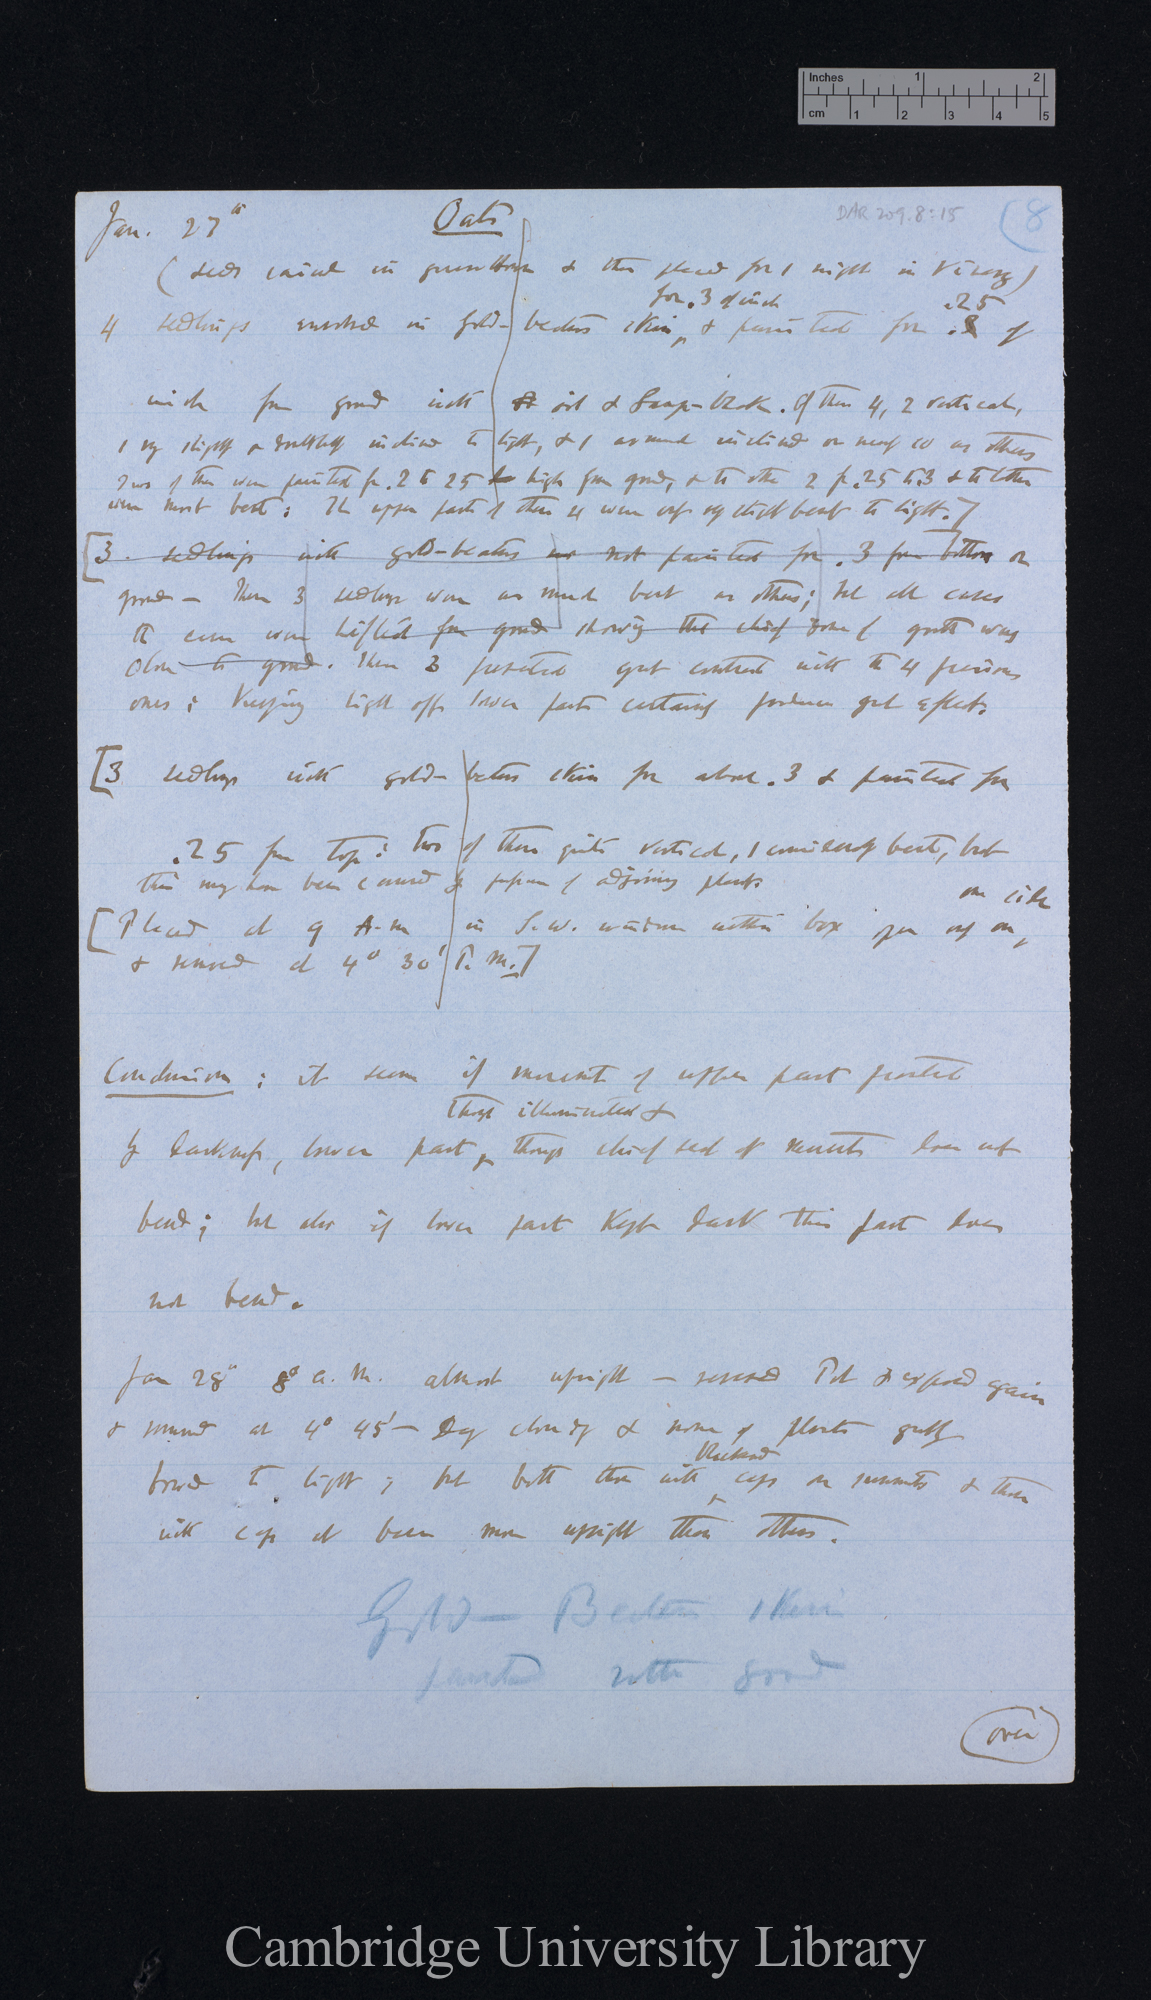 Inches 1 2
cm 1 2 3 4 5
DAR 209.8:15
(8
Jan. 27th Oats
(seeds raised in greenhouse & then placed for 1 night in Vinery)
for .3 of inch .25
4 seedlings enclosed in Gold-beaters skin, & painted for of
inch from ground with oil & Lamp-black. Of these 4, 2 vertical,
1 very slightly or doubtfully inclined to light, & 1 inclined or nearly so as others
Two of them were painted for .2 to 25 high from ground, & the other 2 for .25 to .3 & the latter
were most bent; The upper parts of these 4 were only very slightly bent to light.]
[3. seedlings with gold-beaters not painted for .3 from bottom or
ground — These 3 seedlings were as much bent as others; but all cases
the were lifted from ground showing that chief zone of growth was
close to ground. These 3 presented great contrast with the 4 previous
ones; Keeping light off lower parts certainly produces great effect.
[3 seedlings with gold-beaters skin for about .3 & painted for
.25 from top; two of them quite vertical, 1 considerably bent, but
this may have been caused by pressure of adjoining plants
one side
[Placed at 9 A.m in S.W. window within box open only on
& removed at 4° 30' P.M.]
Conclusion; it seems if movement of upper part prevented
though illuminated &
by darkness, lower part, though chief seat of movements does not
bend; but also if lower part kept dark this part does
not bend.
Jan 28th 8° a.m. almost upright — reversed Pot & exposed again
& removed at 4° 45' — Day cloudy & none of plants greatly
blackened
bowed to light; but both those with caps on summits & those
with caps at base more upright than others.
Gold-Beaters skin
painted with good
over
Cambridge University Library